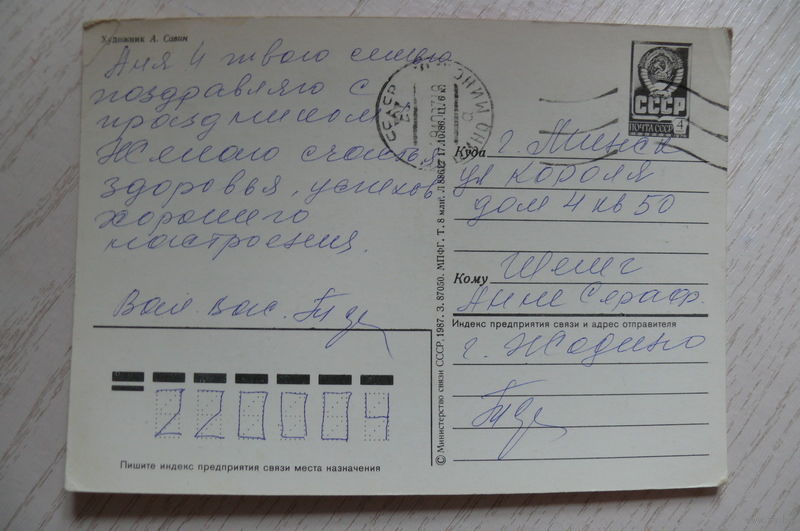 Художник А. Савин
Аня и твою семью
поздравляю с
праздником
Желаю счастья
здоровья, успехов
хорошего
настроения.
Вал. Вас.
СССР
ПОЧТА СССР 4
Куда г. Минск
ул Короля
дом 4 кв 50
Кому Шелег
Анне Сераф.
Индекс предприятия связи и адрес отправителя
г. Жодино
220004
Пишите индекс предприятия связи места назначения
© Министерство связи СССР, 1987. З. 87050. МПФГ. Т. 8 млн. 17.10.86. Ц. 6 к.